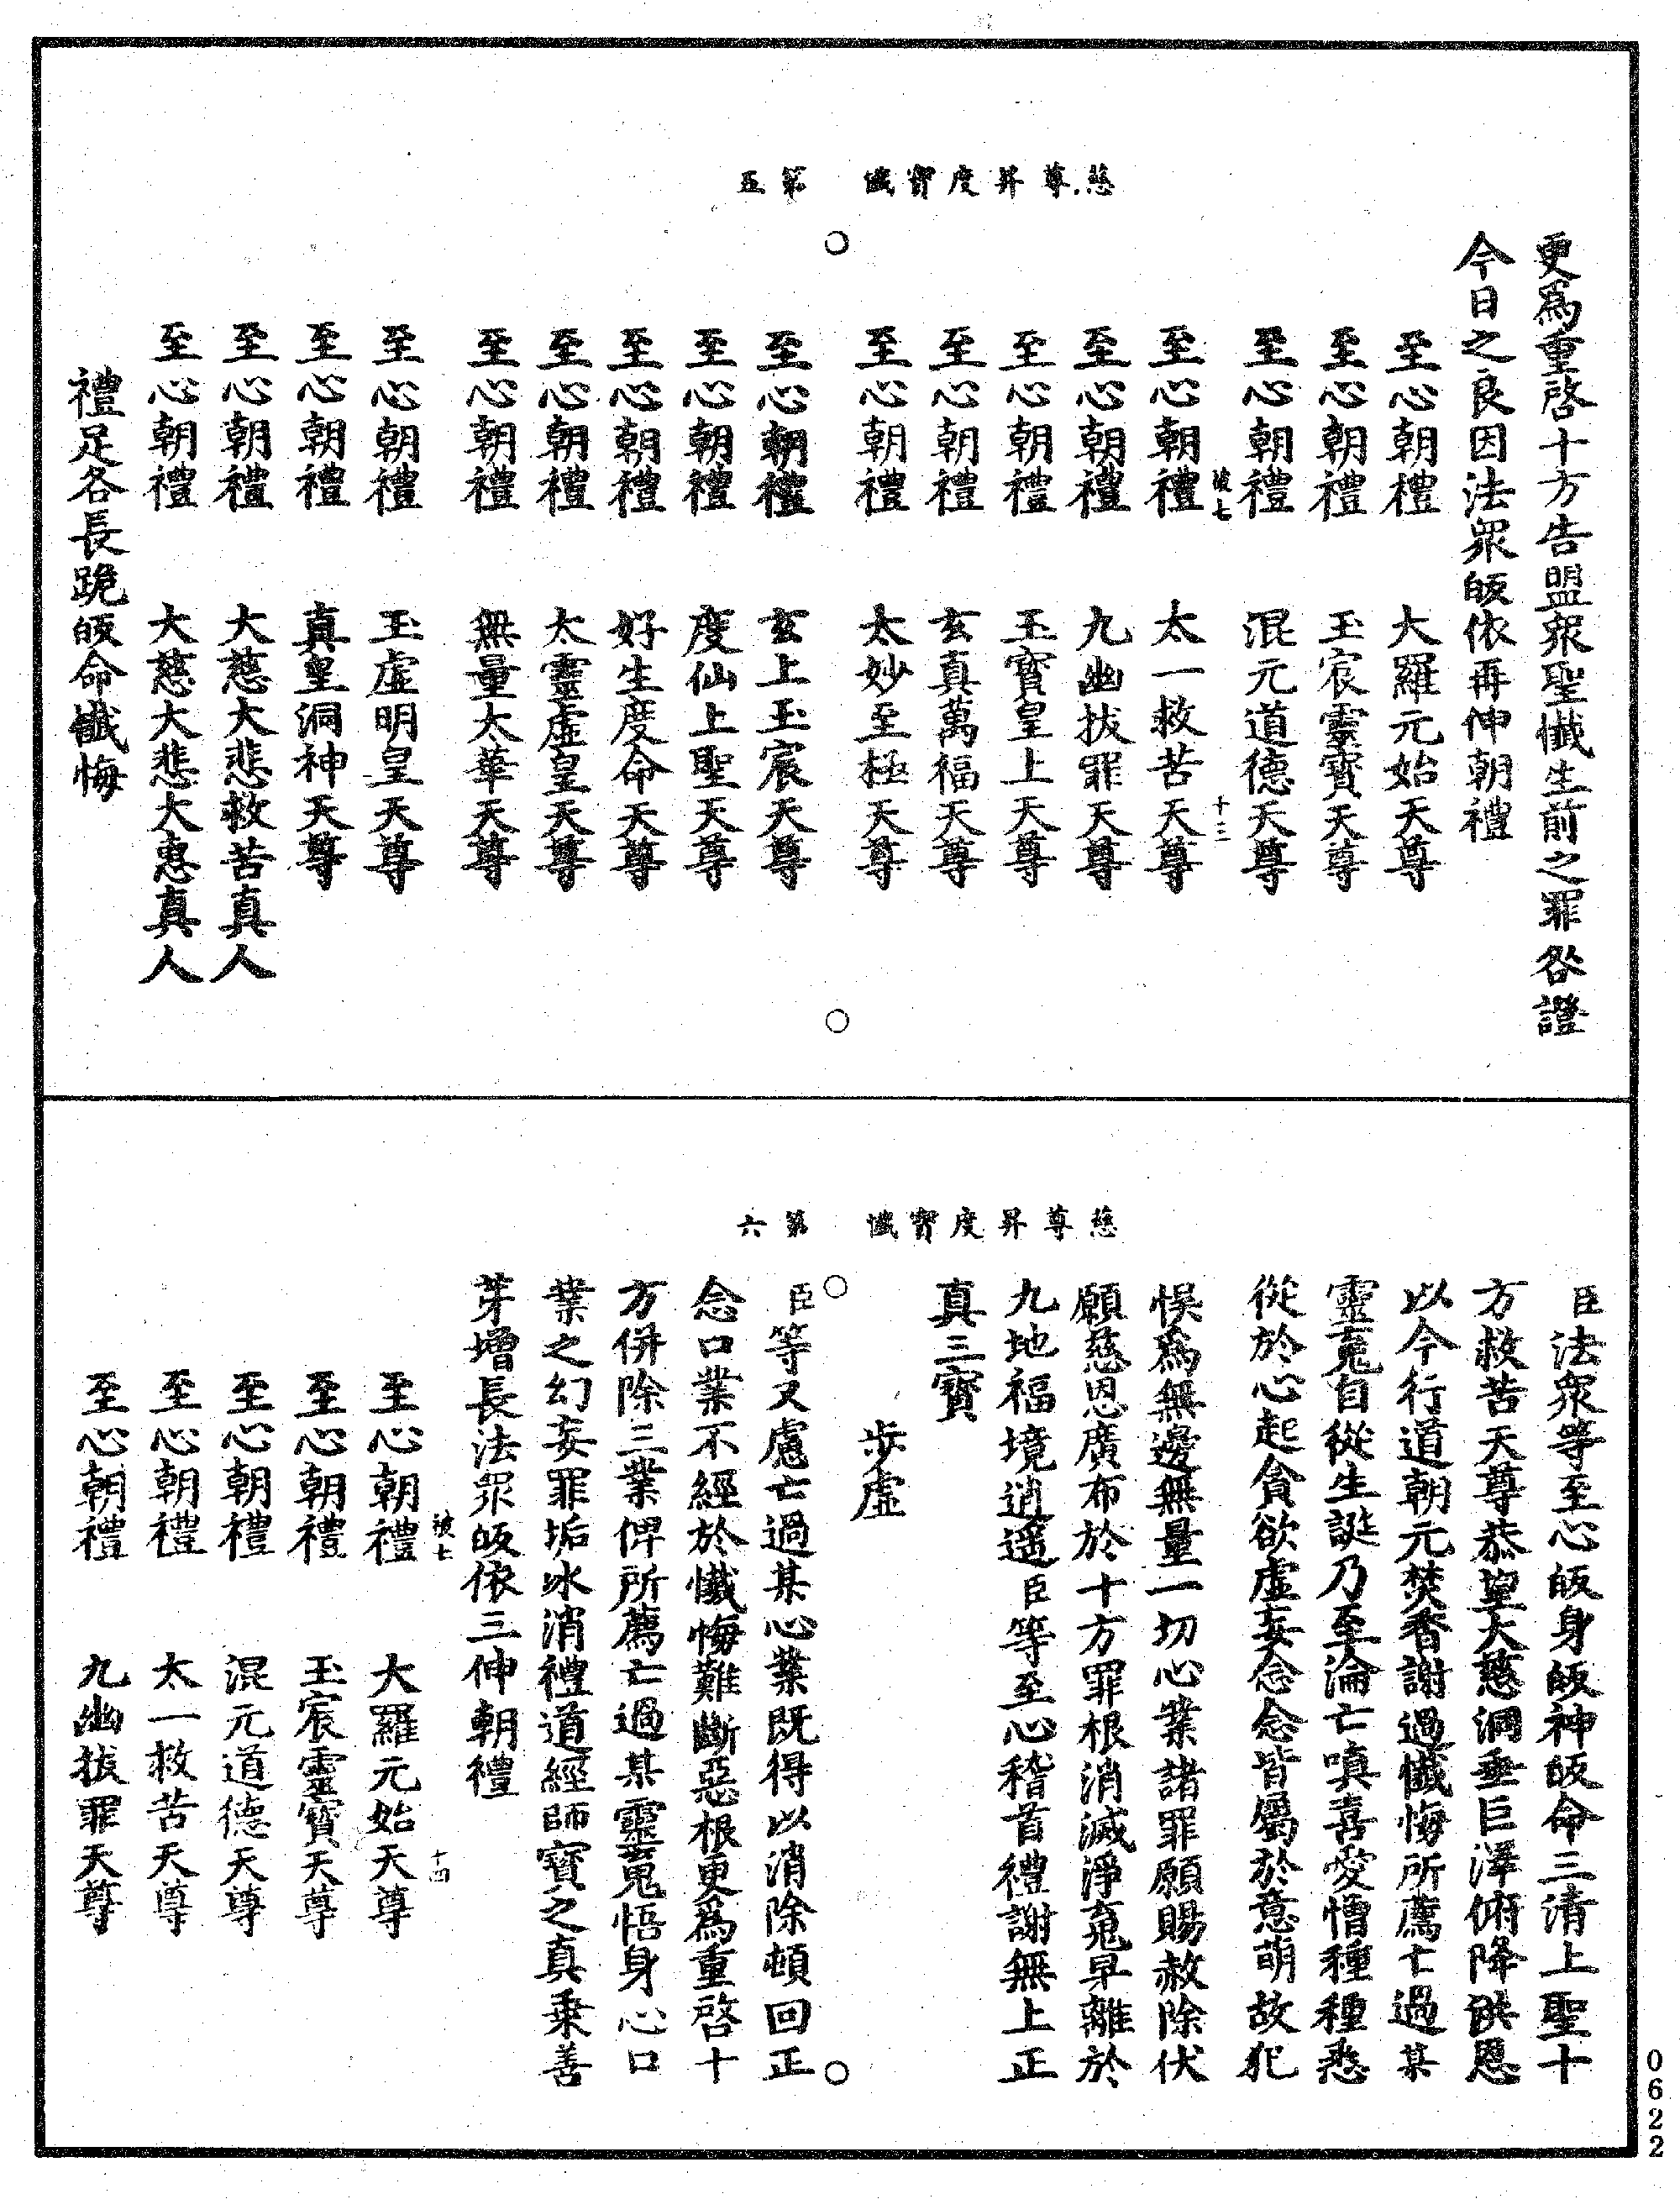 慈尊昇度寶懺　第五
更爲重啓十方告盟眾聖懺生前之罪咎證
今日之良因法眾皈依再伸朝禮
至心朝禮　大羅元始天尊
至心朝禮　玉宸靈寶天尊
至心朝禮　混元道德天尊
被七　十三
至心朝禮　太一救苦天尊
至心朝禮　九幽拔罪天尊
至心朝禮　玉寶皇上天尊
至心朝禮　玄真萬福天尊
至心朝禮　太妙至極天尊
至心朝禮　玄上玉宸天尊
至心朝禮　度仙上聖天尊
至心朝禮　好生度命天尊
至心朝禮　太靈虛皇天尊
至心朝禮　無量太華天尊
至心朝禮　玉虛明皇天尊
至心朝禮　真皇洞神天尊
至心朝禮　大慈大悲救苦真人
至心朝禮　大慈大悲大惠真人
禮足各長跪皈命懺悔
慈尊昇度寶懺　第六
臣法眾等至心皈身皈神皈命三清上聖十
方救苦天尊恭望大慈洞垂巨澤俯降洪恩
以今行道朝元焚香謝過懺悔所薦亡過某
靈䰟自從生誕乃至淪亡嗔喜愛憎種種惑
從於心起貪欲虛妄念念皆屬於意萌故犯
悞爲無邊無量一切心業諸罪願賜赦除伏
願慈恩廣布於十方罪根消滅淨䰟早離於
九地福境逍遥臣等至心稽首禮謝無上正
真三寶
步虛
臣等又慮亡過某心業既得以消除頓回正
念口業不經於懺悔難斷惡根更爲重啓十
方併除三業俾所薦亡過某靈䰟悟身心口
業之幻妄罪垢冰消禮道經師寶之真乘善
芽增長法眾皈依三伸朝禮
被七　十四
至心朝禮　大羅元始天尊
至心朝禮　玉宸靈寶天尊
至心朝禮　混元道德天尊
至心朝禮　太一救苦天尊
至心朝禮　九幽拔罪天尊
0622